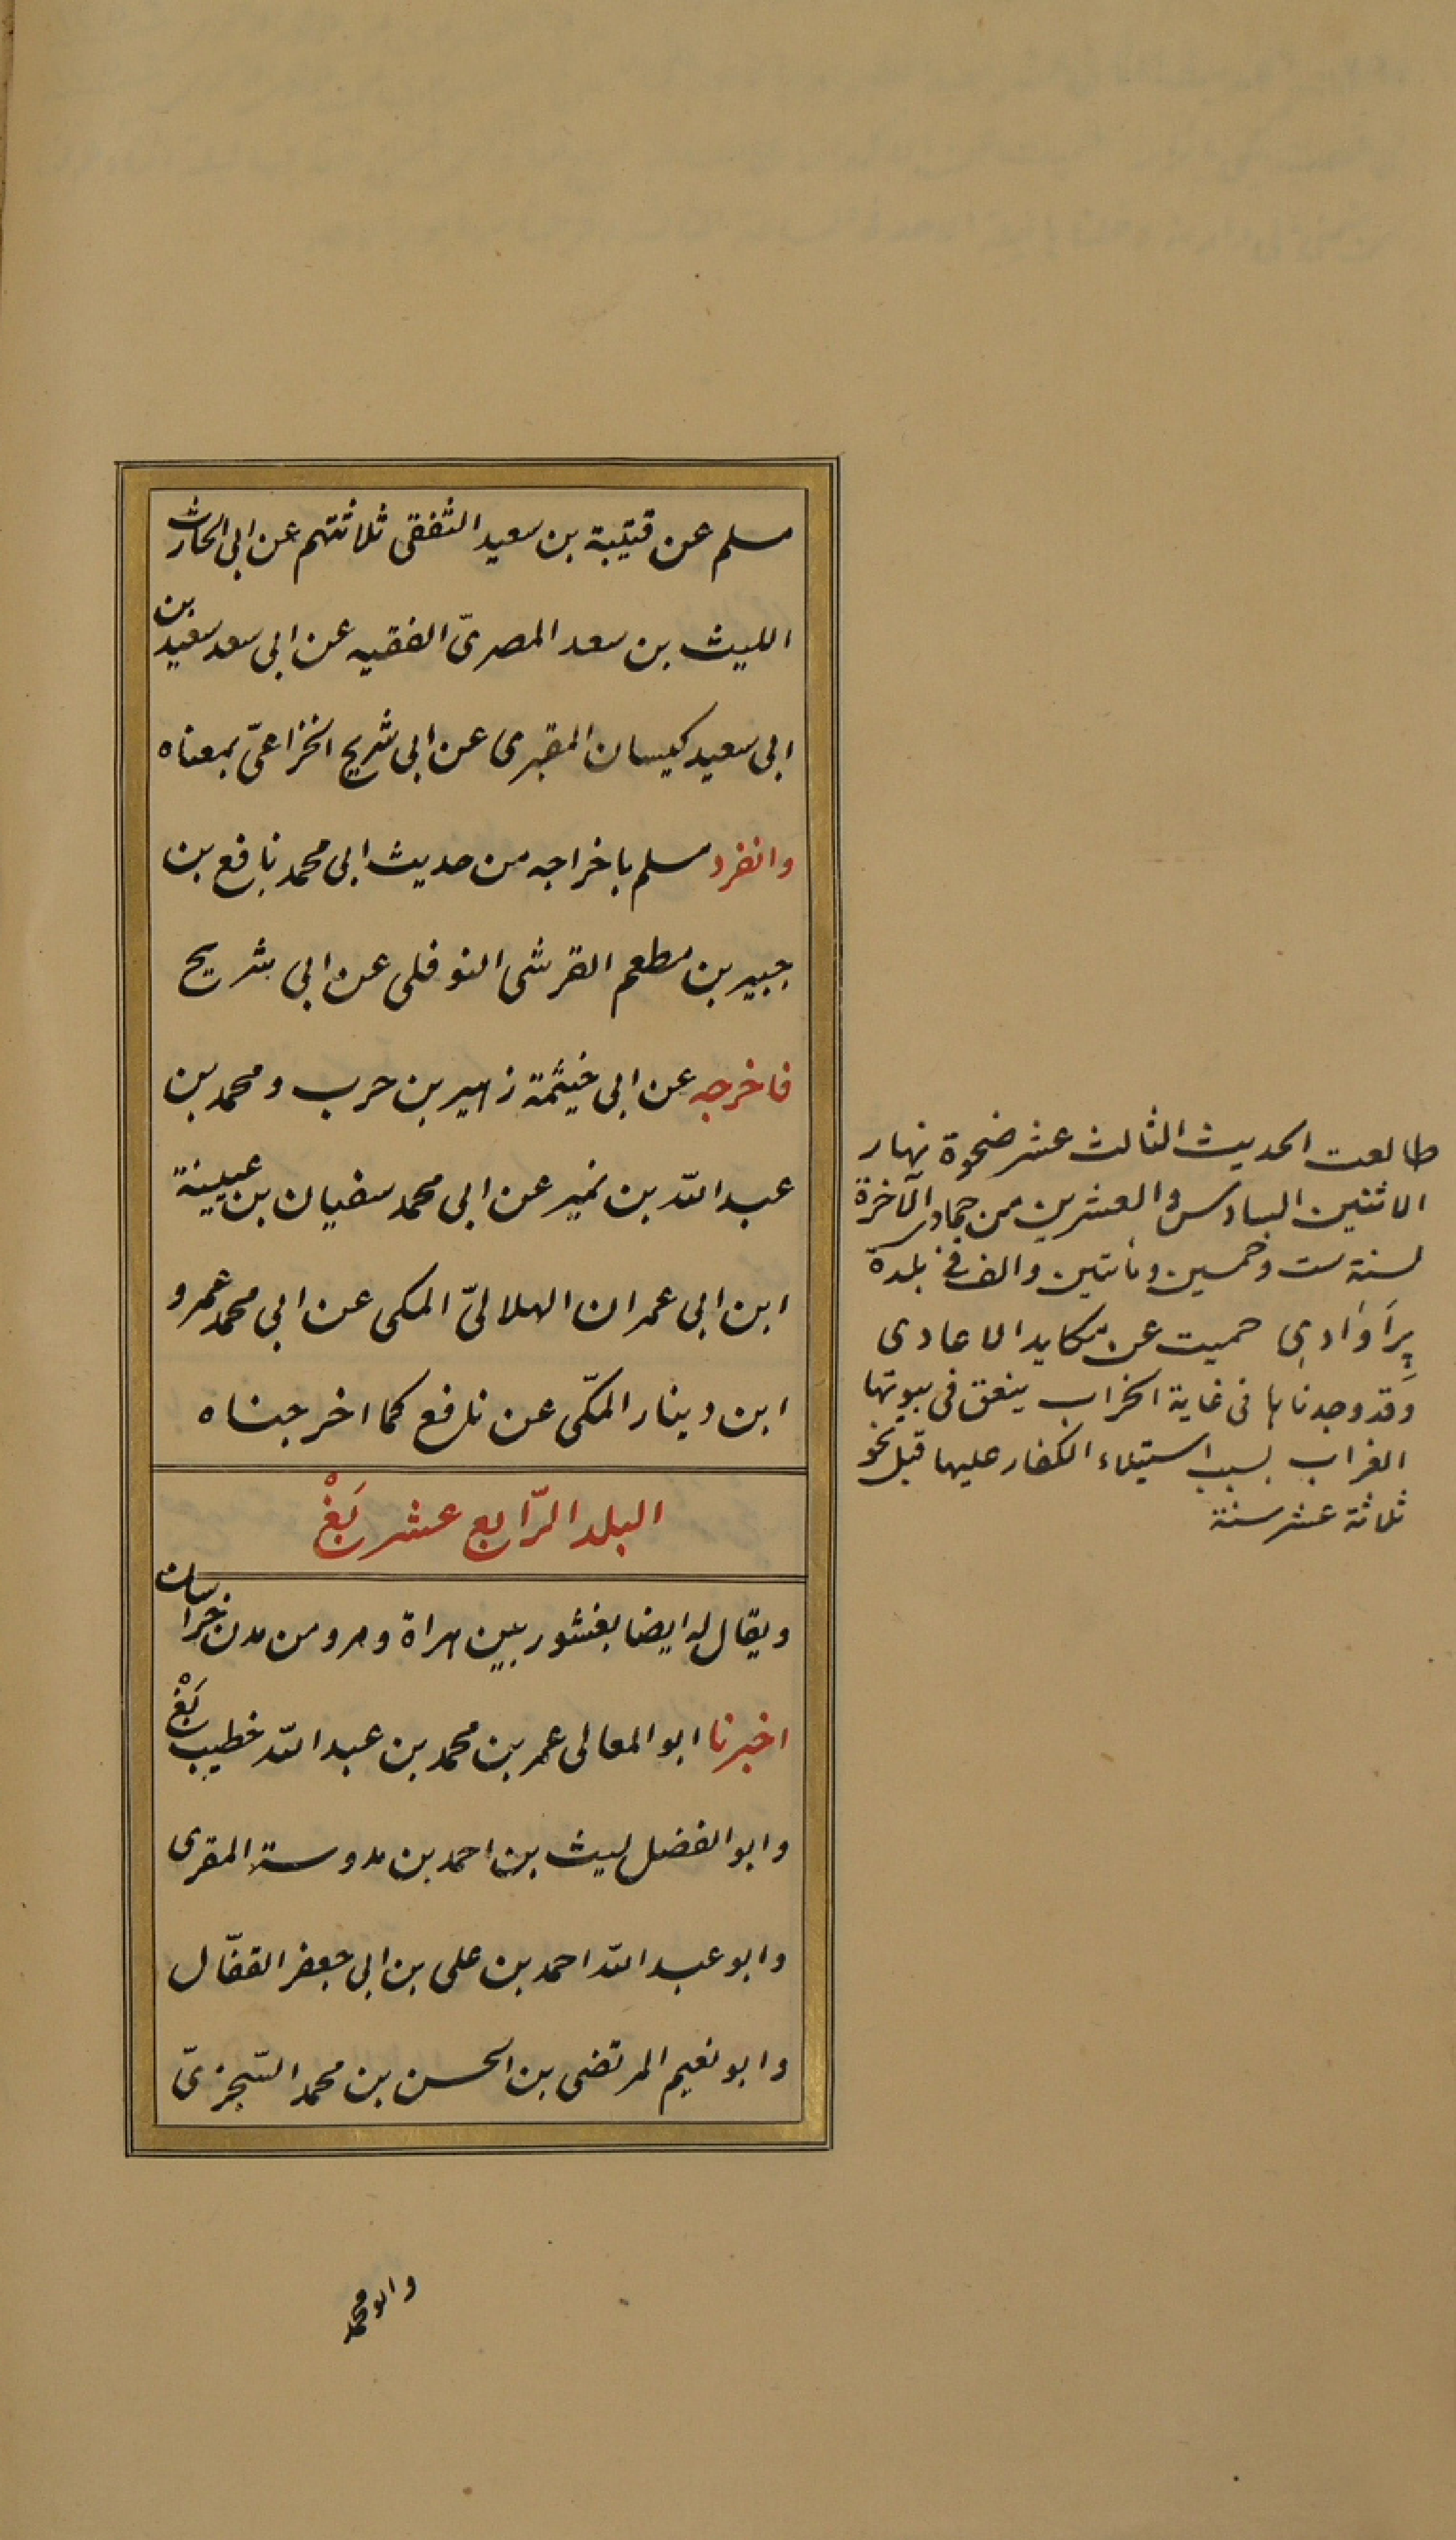 مسلم عن قتيبة بن سعيد الثقفى ثلاثتهم عن ابى الحارث
الليث بن سعد المصرىّ الفقيه عن ابى سعد سعيد بن
ابى سعيد كيسان المقبرى عن ابى شريح الخزاعىّ بمعناه
وانفرد مسلم باخراجه من حديث ابى محمد نافع بن
جبير بن مطعم القرشى النوفلى عن ابى شريح
فاخرجه عن ابى خيثمة زهير بن حرب ومحمد بن
عبد الله بن نمير عن ابى محمد سفيان بن عيينة
ابن ابى عمران الهلالىّ المكى عن ابى محمد عمرو
ابن دينار المكّى عن نافع كما اخرجناه
البلد الرّابع عشر بَغْ
ويقال له ايضا بغشور بين هراة ومرو من مدن خراسان
اخبرنا ابو المعالى عمر بن محمد بن عبد الله خطيب بَغْ
وابو الفضل ليث بن احمد بن مدوسة المقرى
وابو عبد الله احمد بن على بن ابى جعفر القفّال
وابو نعيم المرتضى بن الحسن بن محمد السّجزىّ
وابو محمد
طالعت الحديث الثالث عشر ضحوة نهار
الاثنين السادس والعشرين من جمادى الآخرة
لسنة ست وخمسين ومأتين والف فى بلدة
پِرَاوَادِى حميت عن مكايد الاعادى
وقد وجدناها فى غاية الخراب ينعق فى بيوتها
الغراب بسبب استيلاء الكفار عليها قبل نحو
ثلاثة عشر سنة